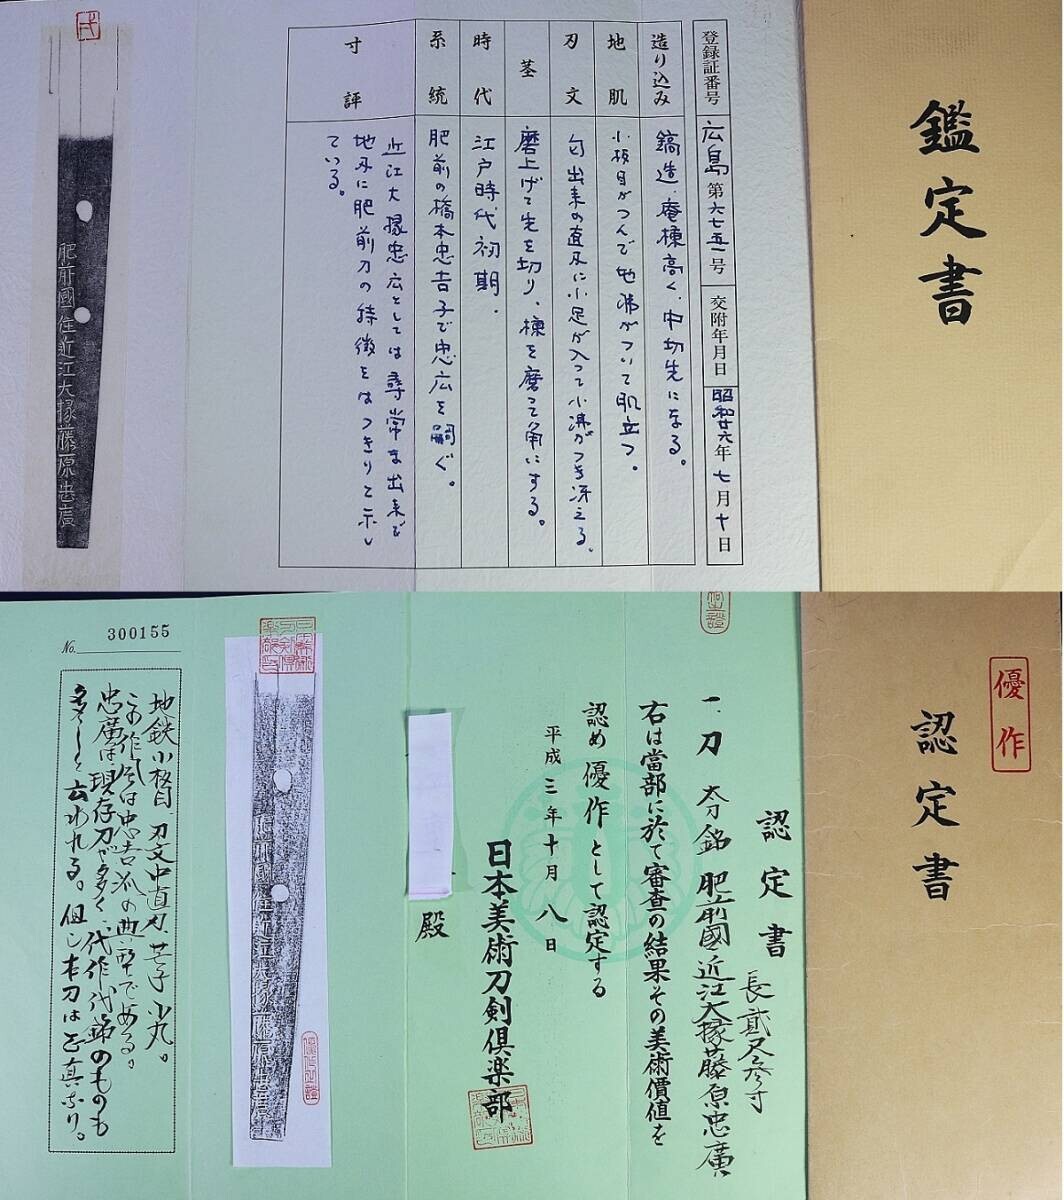 鑑定書
登録証番号 広島第六七五一号 交附年月日 昭和廿六年七月十日
造り込み 鎬造、庵棟高く、中切先になる。
地肌 小板目がつんで地沸がついて肌立つ。
刃文 匂出来の直刃に小足が入って小沸がつき冴える。
茎 磨上げて先を切り、棟を磨って角にする。
時代 江戸時代初期.
系統 肥前の橋本忠吉子で忠広を嗣ぐ。
寸評 近江大掾忠広としては尋常な出来で
地刃に肥前刀の特徴をはっきりと示し
ている。
肥前國住近江大掾藤原忠廣
優作
認定書
認定書
長貳尺参寸
一.刀 太刀銘 肥前國近江大掾藤原忠廣
右は當部に於て審査の結果その美術價値を
認め優作として認定する
平成三年十月八日
日本美術刀剣倶楽部
殿
肥前國住近江大掾藤原忠廣
No. 300155
地鉄小板目、刃文中直刃、芒子小丸。
この作風は忠吉派の典型である。
忠廣は現存刀が多く、代作代銘のものも
多しと云われる。但し本刀は正真なり。